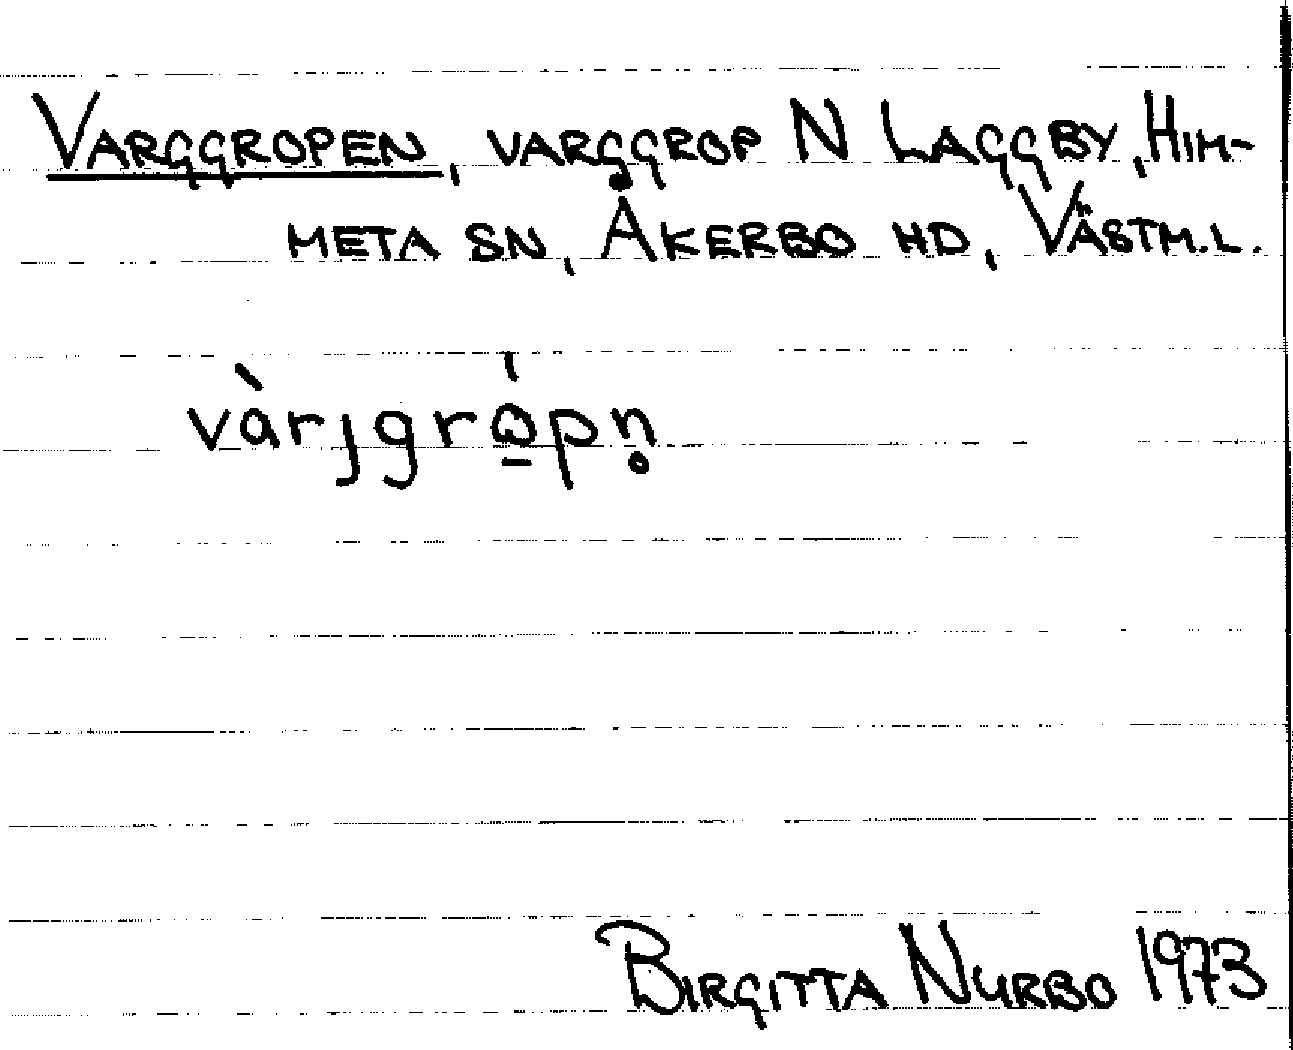 VARGGROPEN, VARGGROP N LAGGBY, HIM-
META SN, ÅKERBO HD, VÄSTM.L.
vàrjgrɷ̲́pn̥
BIRGITTA NURBO 1973